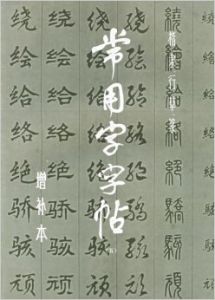 常用字字帖
增补本
楷隶行草篆
绕 绕 绕 繞
绘 绘 繪
给 给 給
络 络 絡
绝 绝 绝 絕
骄 骄 骄 驕
骇 骇 骇 駭
顽 顽 顽 頑